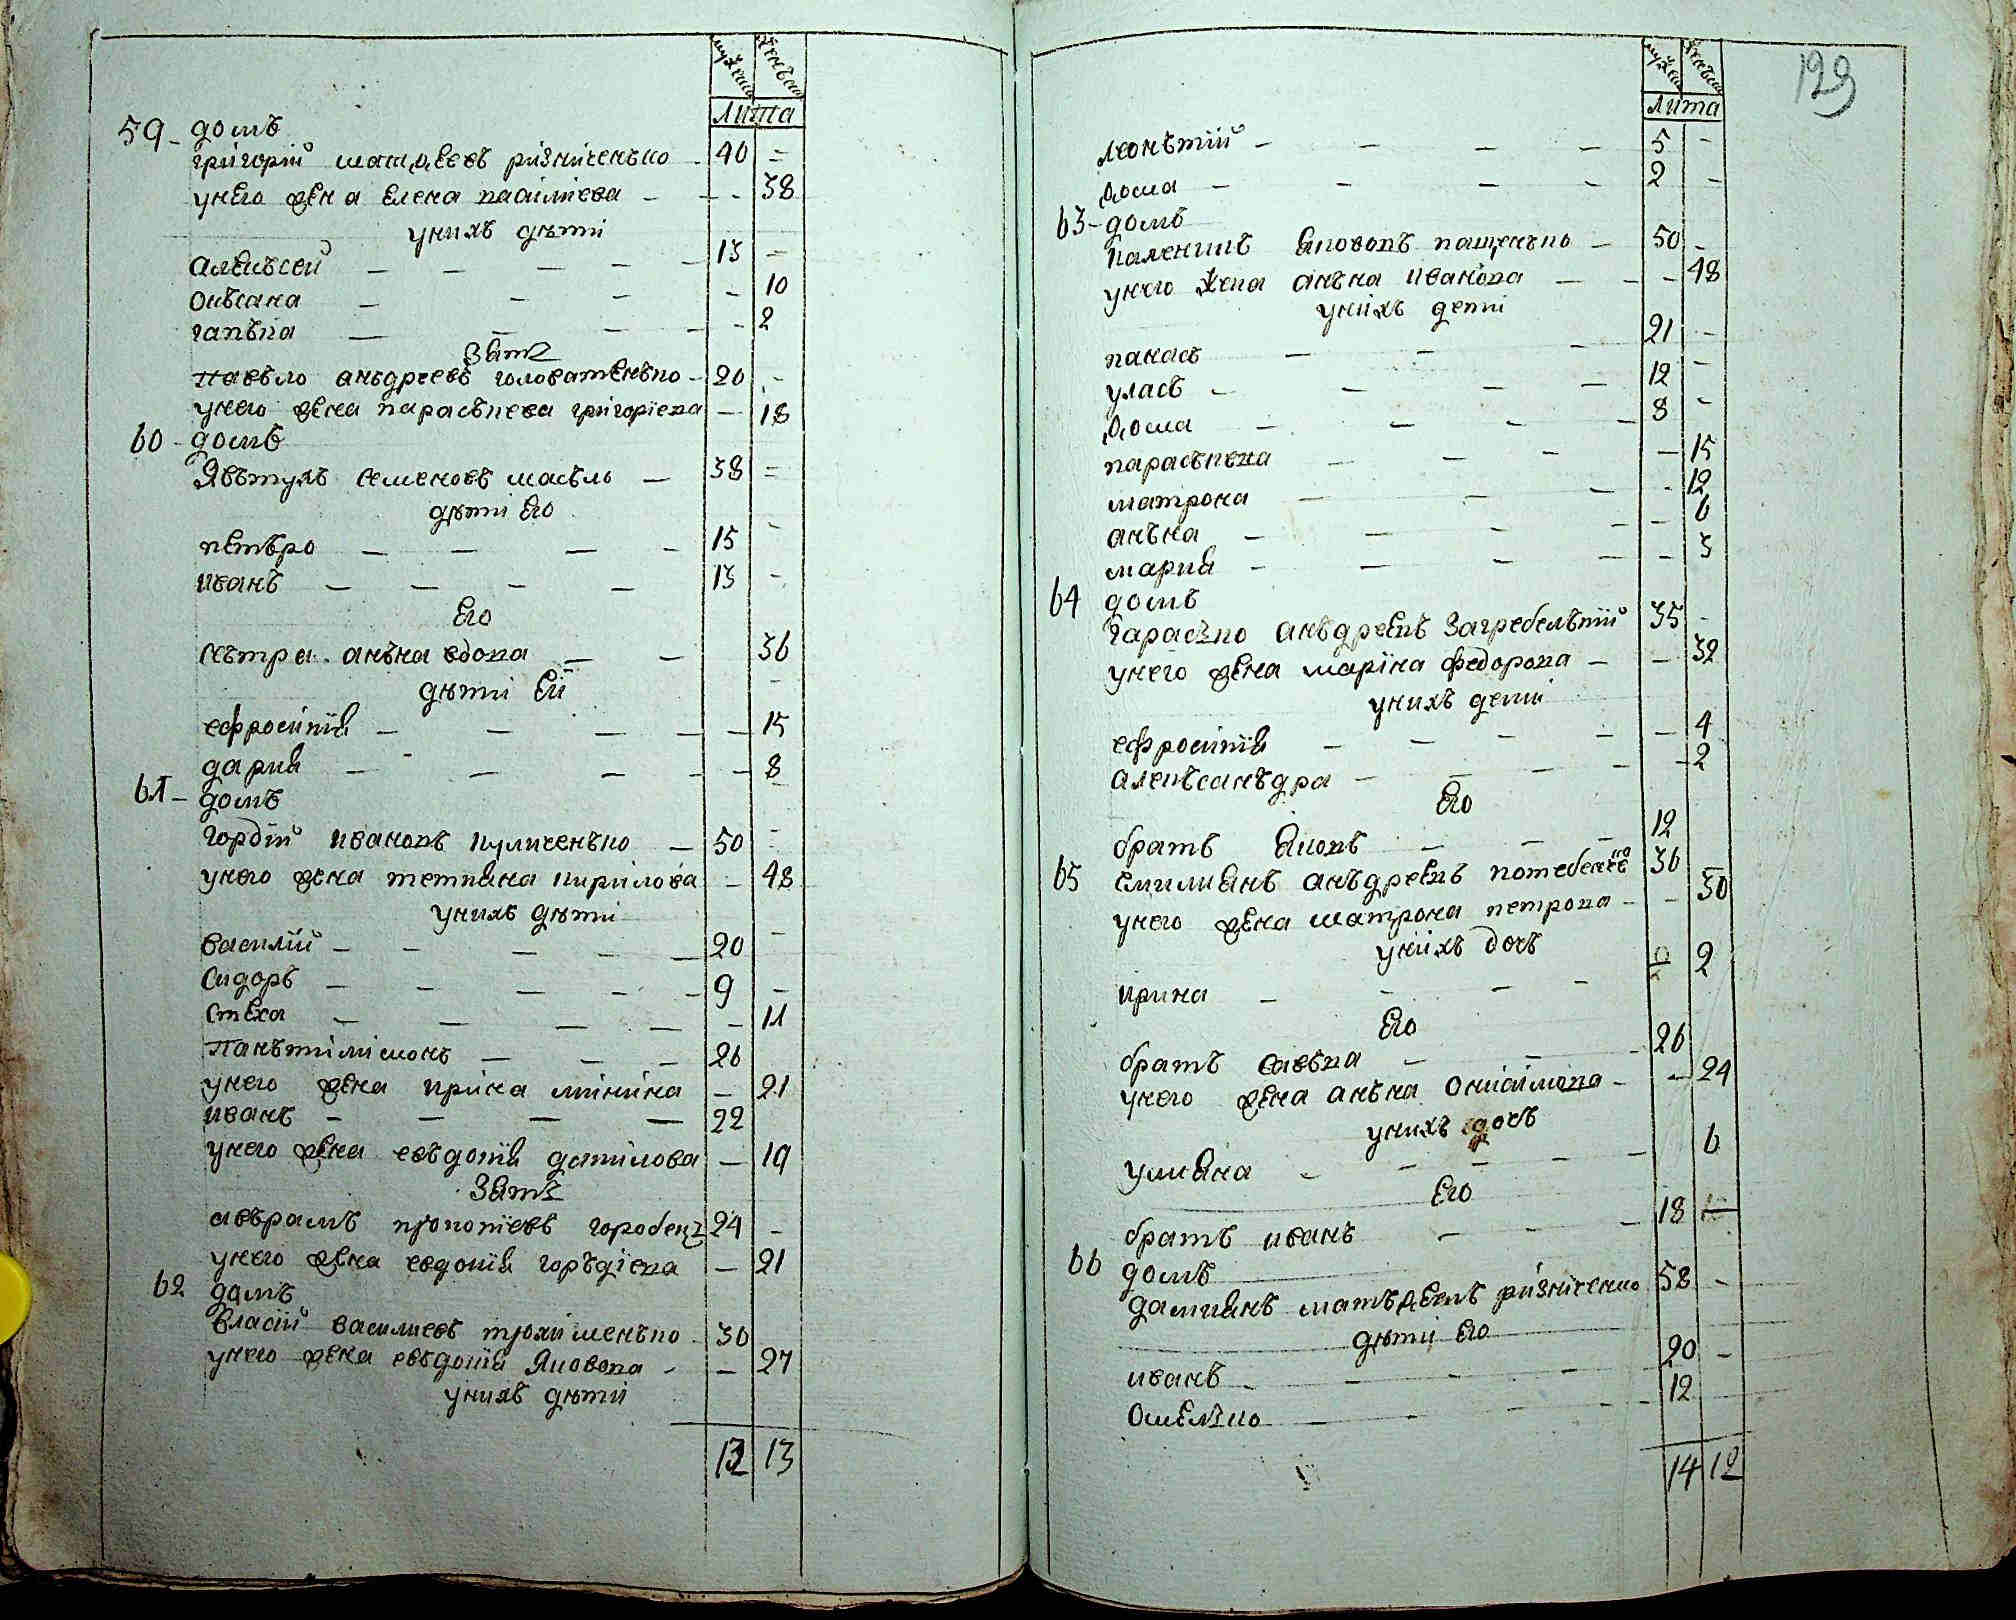 мужеска женъска
лита
59 - домъ
григорій матѳеевъ різніченъко - 40 =
унего жена Елена василиева - - - 38
унихъ дѣти
алексѣй - - - - 13 -
оксана - - - - 10
гапъка - - - - 2
Зять
павъло анъдреевъ головатенъко - 20 -
унего жена парасъкева григоріева - 18
60 - домъ
Явътухъ семеновъ масълъ - 38 =
дѣти Его
петъро - - - - 15 -
иванъ - - - - 13 -
Его
сестра анъна - - 36
дѣти Ей
ефросинія - - - - - 15
дария - - - - - 8
61 - домъ
гордій ивановъ куличенъко - 50 -
унего жена тетияна кирилова - 48
унихъ дѣти
василій - - - - - 20 -
сидоръ - - - - - 9 -
стеха - - - - - 11
панътилімонъ - - - 26
унего жена ирина минина - 21
иванъ - - - - 22
унего жена евъдокия данилова - 19
Зять
авърамъ прокопіевъ горобецъ 24 -
унего жена евдокия горъдіева - 21
62 домъ
власій василиевъ трохименъко - 36
унего жена евъдокия Яковова - - 27
унихъ дѣти
13 13
129
мужеска женъска
лита
леонътій - - - - 5 -
ѳома - - - - 2 -
63 - домъ
каленикъ Яновъ пащенъко - 50 -
унего жена анъна иванова - - - 48
унихъ дети
панасъ - - - 21 -
уласъ - - - - 12 -
ѳома - - - - 8 -
парасъкева - - - - 15
матрона - - - - 12
анъна - - - - - 6
мария - - - - - 3
64 домъ
тарасъко анъдреевъ Загребелъній 35 -
унего жена маріна федорова - - 32
унихъ дети
ефросинія - - - - - 4
алекъсанъдра - - - - 2
Его
братъ Яковъ - - - 12
65 Емилиянъ анъдреевъ потебенко 36 -
унего жена матрона петрова - - 30
унихъ дочъ
ирина - - - - 2
Его
братъ савъка - - - 26
унего жена анъна онисимова - - 24
унихъ дочъ
улияна - - - - - 6
Его
братъ иванъ - - - 18 -
66 домъ
дамиянъ матъѳеевъ різніченко 58 -
дѣти Его
иванъ - - - - 20 -
омелъко - - - - 12
14 12